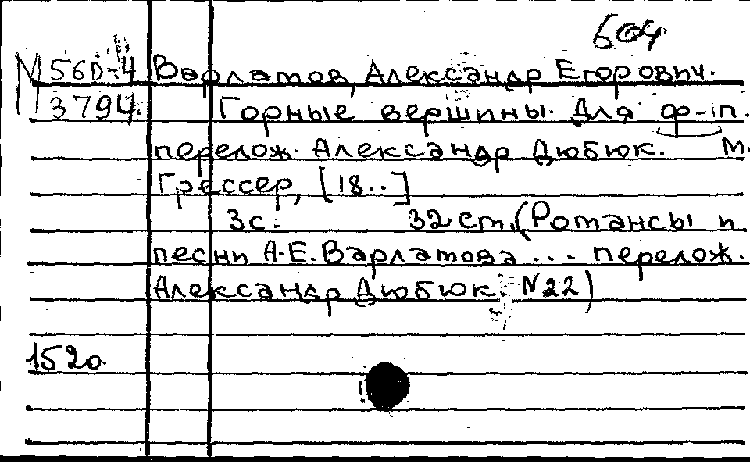 604
М 56D-4 Варламов, Александр Егорович.
3794. Горные вершины. Для ф-п.
перелож. Александр Дюбюк. М.
Грессер, [18..]
3с. 32 см. (Романсы и
песни А.Е. Варламова ... перелож.
Александр Дюбюк. N22)
1520